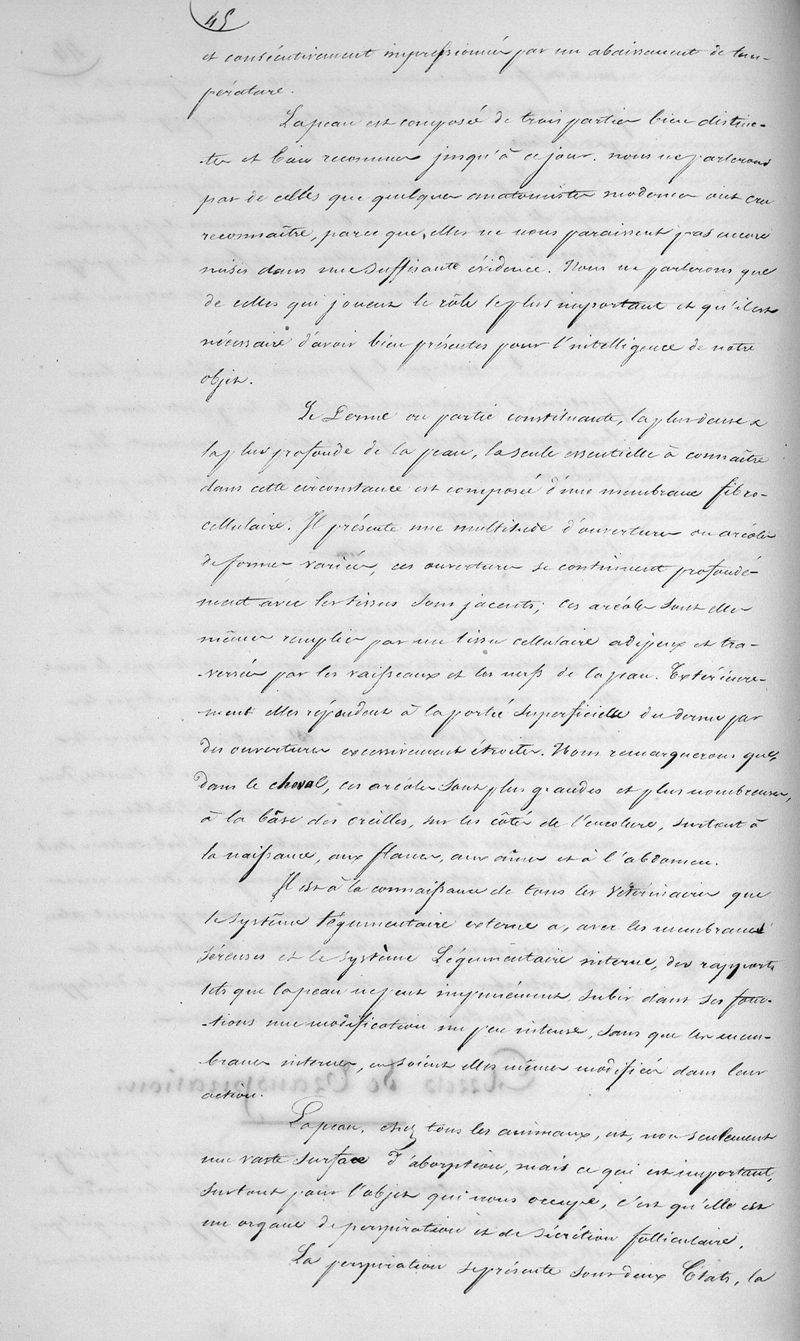 45
et consécutivement impressionnée par un abaissement de tem-
pérature.
La peau est composée de trois parties bien distinc-
tes et bien reconnues jusqu'à ce jour. nous ne parlerons
pas de celles que quelques anatomistes modernes ont cru
reconnaître, parce que, elles ne nous paraissent pas encore
mises dans une suffisante évidence. Nous ne parlerons que
de celles qui jouent le rôle le plus important et qu'il est
nécessaire d'avoir bien présentes pour l'intelligence de notre
objet.
Le Derme ou partie constituante, la plus dense &
la plus profonde de la peau, la seule essentielle à connaître
dans cette circonstance est composée d'une membrane fibro-
cellulaire. Il présente une multitude d'ouvertures ou aréoles
de formes variées, ces ouvertures se continuent profondé-
ment avec les tissus sous jacents; ces aréoles sont elles
mêmes remplies par un tissu cellulaire adipeux et tra-
versées par les vaisseaux et les nerfs de la peau. Extérieure-
ment elles répondent à la partie superficielle du derme par
des ouvertures excessivement étroites. Nous remarquerons que,
dans le cheval, ces aréoles sont plus grandes et plus nombreuses,
à la bâse des oreilles, sur les côtés de l'encolure, surtout à
la naissance, aux flancs, aux aînes et à l'abdomen.
Il est à la connaissance de tous les vétérinaires que
le système tégumentaire externe a, avec les membranes
séreuses et le système Légumentaire interne, des rapports
tels que la peau ne peut impunément subir dans ses fonc-
tions une modification un peu intense, sans que les mem-
branes internes, en soient elles mêmes modifiées dans leur
action.
La peau, chez tous les animaux, est, non seulement
une vaste surface d'absorption, mais ce qui est important,
surtout pour l'objet qui nous occupe, c'est qu'elle est
un organe de perspiration et de sécrétion folliculaire.
La perspiration se présente sous deux Etats, la